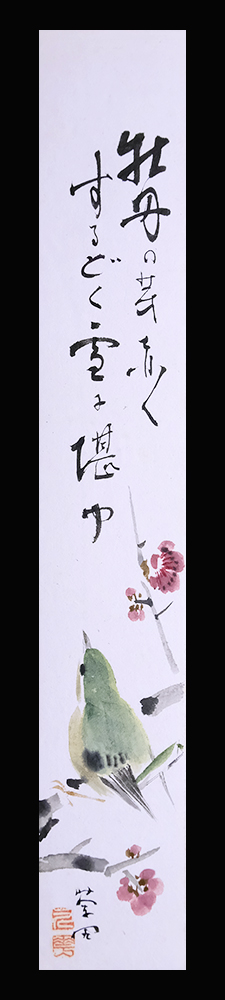 牡丹の芽赤く
するどく雪に堪ゆ